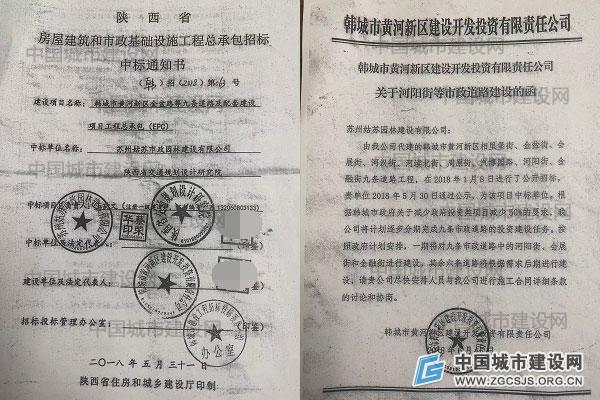 陕西省
房屋建筑和市政基础设施工程总承包招标
中标通知书
招(2018)
建设项目名称:韩城市黄河新区金盆路等九条道路及配套建设
项目工程总承包(EPC)
中标单位名称:苏州姑苏市政园林建设有限公司
陕西省交通规划设计研究院
中标项目
13205080312
中标单位及法定代表人:
(签)
建设单位及法定代表人:
招标投标管理办公室:
(印鉴)
办公室
二〇一八年五月三十一日
陕西省住房和城乡建设厅印制
韩城市黄河新区建设开发投资有限责任公司
韩城市黄河新区建设开发投资有限责任公司
关于河阳街等市政道路建设的函
苏州姑苏园林建设有限公司:
由我公司代建的韩城市黄河新区相里堡街、金盆街、会
展街、河汉街、河渎北街、周原街、汽博园路、河阳街、金
融街九条道路工程,在2018年1月8日进行了公开招标,
贵单位2018年5月30日通过公示,为该项目中标单位。根
据韩城市政府关于减少政府投资类项目减少50%的要求,我
公司将计划逐步分期完成九条市政道路的投资建设任务。按
照政府计划安排,一期将对九条市政道路中的河阳街、会展
街和金融街进行建设,其余六条道路待根据需求后期进行建
设。请贵公司尽快安排人员与我公司进行施工合同详细条款
的讨论和协商。
韩城市黄河新区建设开发投资有限责任公司
中国城市建设网
WWW.ZGCSJS.ORG.CN